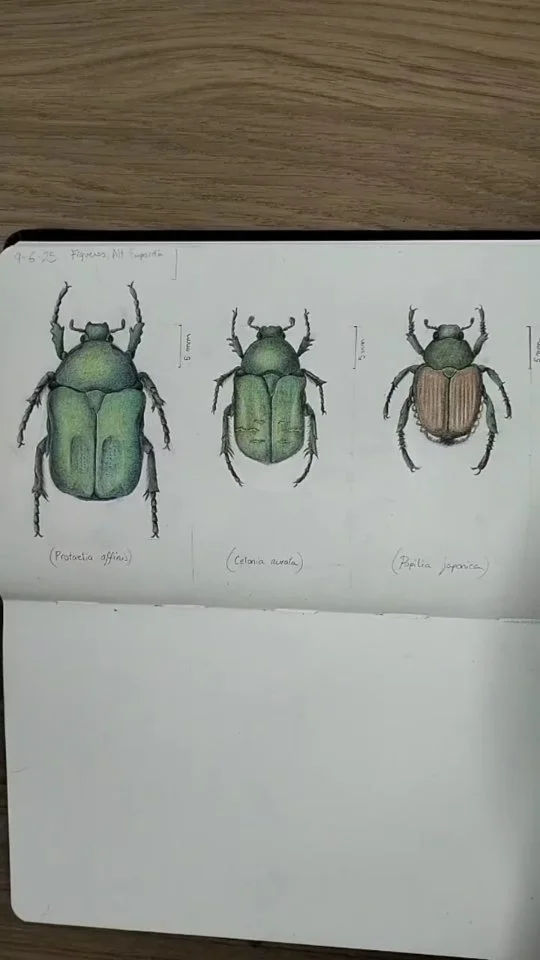 9-6-25 Figueres, Alt Empordà
5 mm
5 mm
5 mm
(Protaetia affinis)
(Cetonia aurata)
(Popilia japonica)